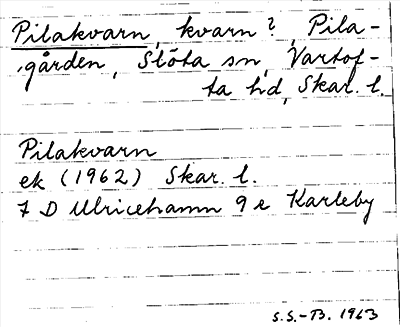 Pilakvarn, kvarn?, Pila-
gården, Slöta sn, Vartof-
ta hd, Skar. l.
Pilakvarn
ek (1962) Skar. l.
7 D Ulricehamn 9 e Karleby
S.S.-B. 1963